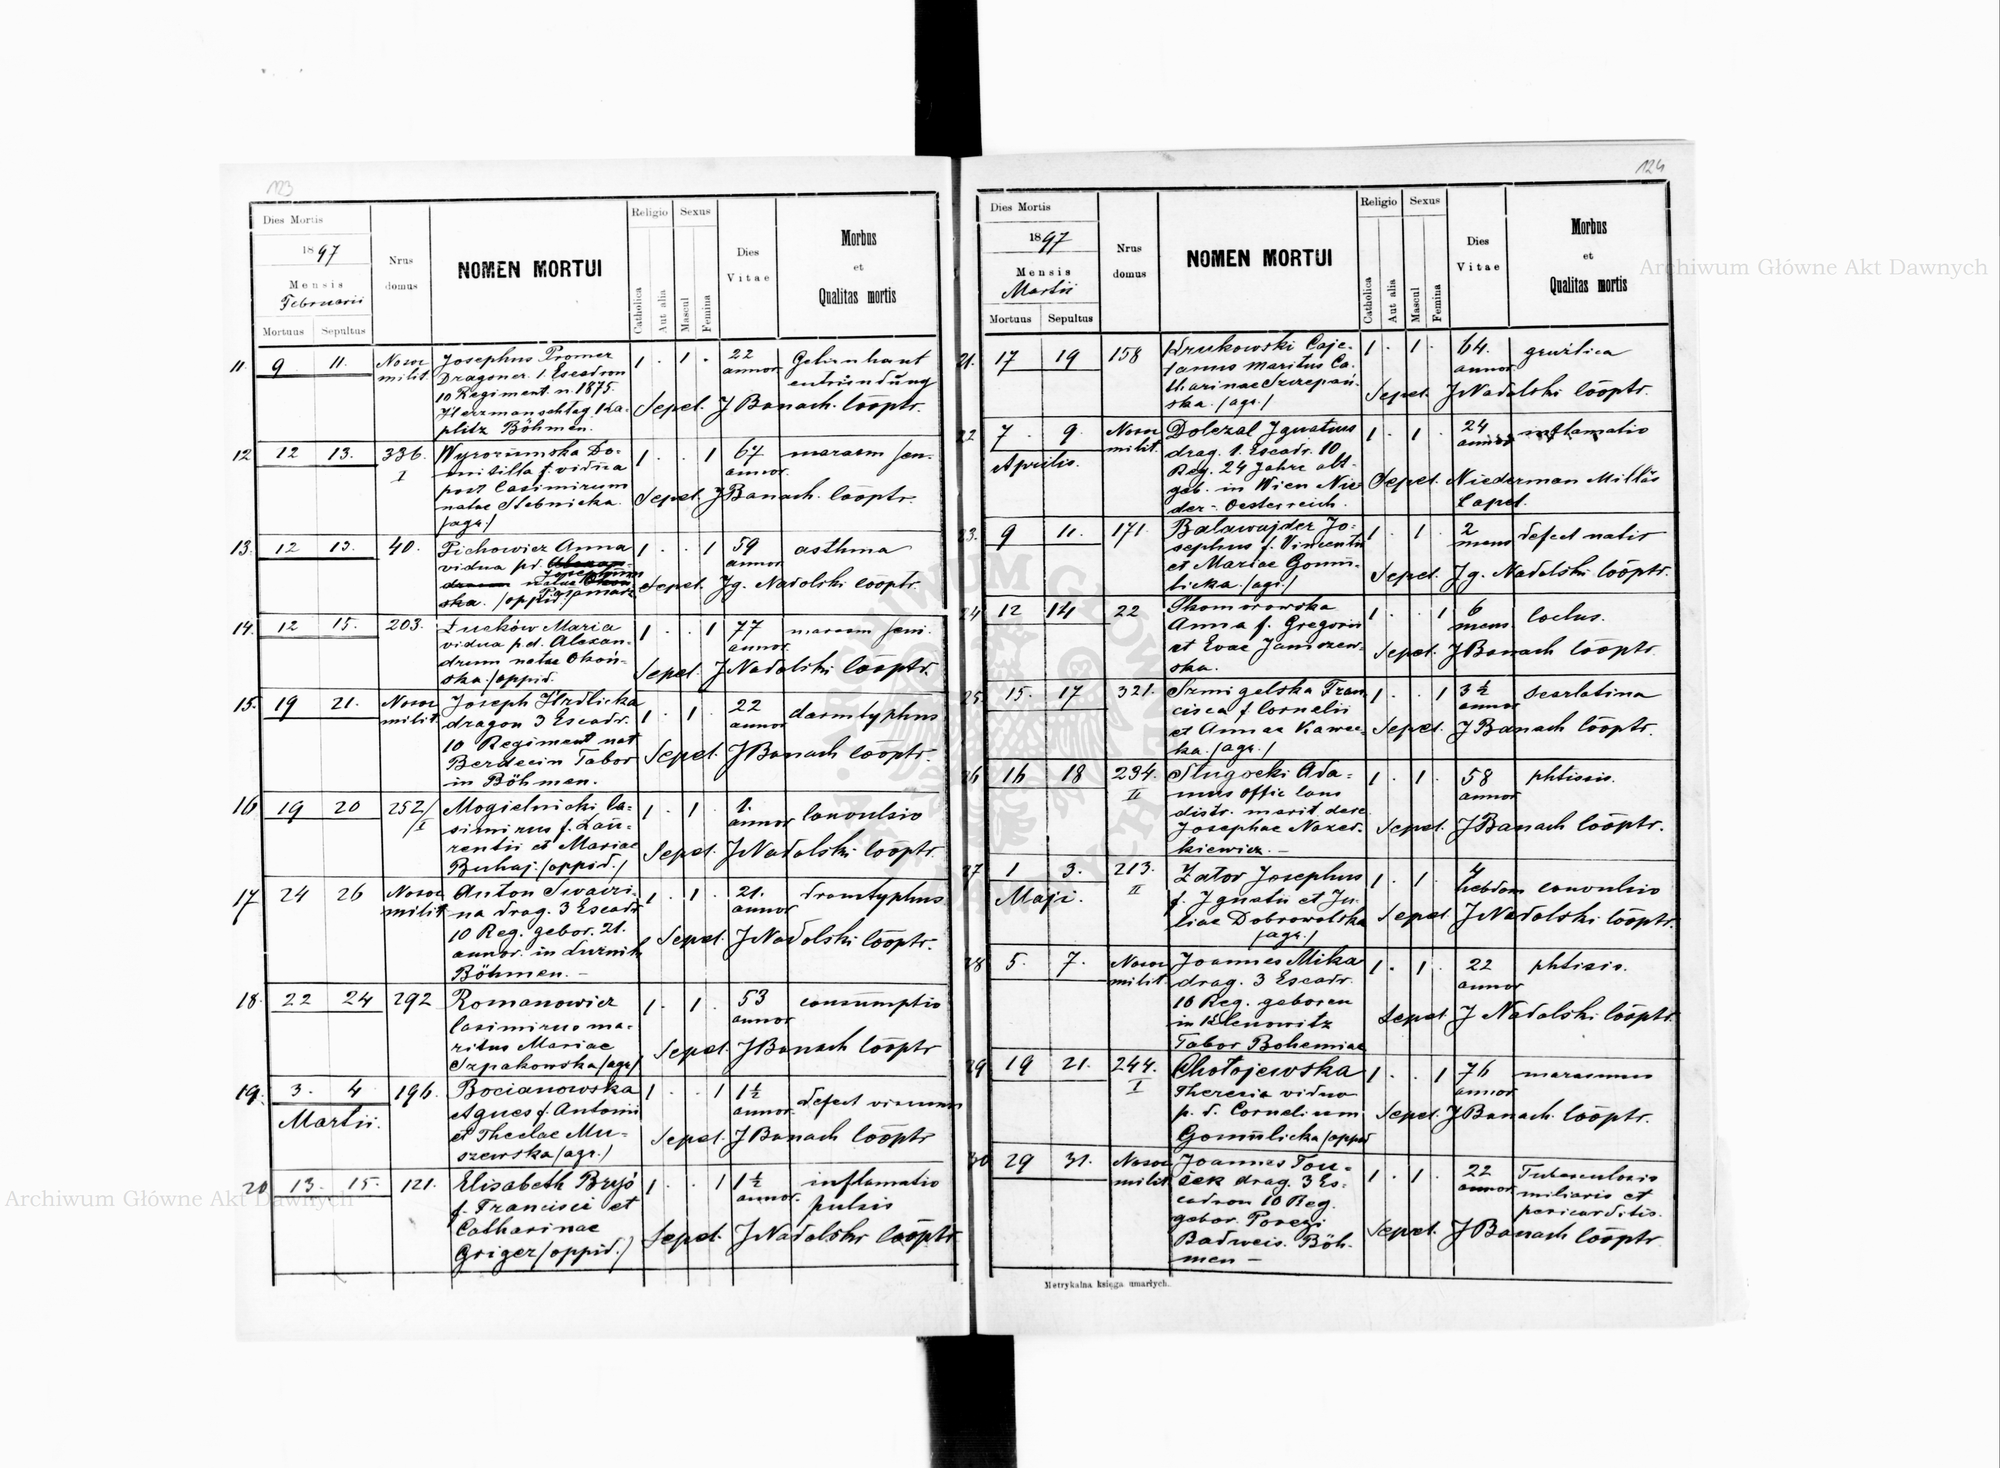 123
Dies Mortis
1897
Mensis
Februarii
Mortuus Sepultus
Nrus
domus
NOMEN MORTUI
Religio Sexus
Catholica Aut alia Mascul Femina
Dies
Vitae
Morbus
et
Qualitas mortis
11. 9 11. Nosoc
milit.
Josephus Promer
Dragoner 1. Escadron
10 Regiment n. 1875.
Herzmanschlag Ka-
plitz Böhmen.
1 . 1 . 22
annor
Gehirnhaut
entzündung
Sepel. J Banach. Cööptr.
12 12 13. 336.
I
Do-
mitilla f. vidua
post Casimirum
natae Slebnicka.
/agr./
1 . . 1 67
annor.
marasm sen.
Sepel. J Banach. Cööptr.
13. 12 13. 40.
Pichowicz Anna
vidua pd.
ska. /oppid./
1 . . 1 59
annor
asthma
Sepel. Jg. Nadolski Cööptr.
14. 12 15. 203.
Lucków Maria
vidua p.d. Alexan-
drum natae Okoń-
ska. /oppid.
1 . . 1 77
annor.
marasm seni.
Sepel. J Nadolski Cööptr.
15. 19 21. Nosoc
milit.
Joseph Hrdlicka
dragon 3 Escadr.
10 Regiment nat
Tabor
in Böhmen.
1 . 1 . 22
annor
darmtyphus
Sepel. J Banach Cööptr.
16 19 20 252/I
Mogielnicki Ca-
simirus f. Lau-
rentii et Mariae
Buhaj. /oppid./
1 . 1 . 1.
annor
convulsio
Sepel. J Nadolski Cööptr.
17 24 26 Nosoc
milit
Anton
na drag. 3 Escadr
10 Reg. gebor. 21.
annor. in
Böhmen. –
1 . 1 . 21.
annor
Sepel. J Nadolski Cööptr.
18. 22 24 292
Romanowicz
Casimirus ma-
ritus Mariae
Szpakowska /agr/
1 . 1 . 53
annor
consumptio
Sepel. J Banach Cööptr
19. 3. 4 196.
Martii.
Bocianowska
Agnes f. Antonii
et Theclae Mu-
szewska /agr./
1 . . 1 1½
annor.
defect virium
Sepel. J Banach Cööptr
20 13. 15. 121.
Elisabeth Bryś
f. Francisci et
Catharinae
Griger /oppid./
1 . . 1 1½
annor.
inflamatio
pulsis
Sepel. J Nadolski Cööptr.
124
Dies Mortis
1897
Mensis
Martii
Mortuus Sepultus
Nrus
domus
NOMEN MORTUI
Religio Sexus
Catholica Aut alia Mascul Femina
Dies
Vitae
Morbus
et
Qualitas mortis
21. 17 19 158
Krukowski Caje-
tanus maritus Ca-
tharinae Szczepań-
ska. /agr./
1 . 1 . 64.
annor
Sepel. J Nadolski Cööptr.
22 7 9. Nosoc
milit.
Aprilis.
Dolezal Ignatius
drag. 1. Escadr. 10
Reg. 24 Jahre alt
geb. in Wien Nie
der-Oesterreich.
1 . 1 . 24
annor
inflamatio
Sepel. Niederman Capel.
23. 9 11. 171.
Balawajder Jo-
sephus f. Vincentii
et Mariae Gomu-
licka. /agr./
1 . 1 . 2
mens
defect nativ
Sepel. Jg. Nadolski Cööptr.
24 12 14 22
Skomorowska
Anna f. Gregorii
et Evae Janiszew-
ska.
1 . . 1 6
mens
Sepel. J Banach Cööptr.
25. 15. 17 321.
Szmigelska Fran
cisca f. Cornelii
et Annae Kawec-
ka. /agr./
1 . . 1 3½
annor
scarlatina
Sepel. J Banach Cööptr.
26 16 18 234.
II
Slugocki Ada-
mus offic
distr. marit.
Josephae
kiewicz. –
1 . 1 . 58
annor
phtisis.
Sepel. J Banach Cööptr.
27 1 3. 213.
II
Maji.
Zator Josephus
f. Ignatii et Ju
liae Dobrowolska
/agr./
1 . 1 . 4
hebdom
convulsio
Sepel. J Nadolski Cööptr.
28 5. 7. Nosoc
milit.
Joannes Mika
drag. 3 Escadr.
10 Reg. geboren
in Klenowitz
Tabor Bohemiae
1 . 1 . 22
annor
phtisis.
Sepel. J Nadolski Cööptr.
29 19 21. 244.
I
Chołojewska
Theresia vidua
p. d. Cornelium
Gomulicka /oppid
1 . . 1 76
annor
marasmus
Sepel. J Banach. Cööptr.
30 29 31. Nosoc
milit
Joannes Tou-
šek drag. 3 Es-
cadron 10 Reg.
gebor.
Budweis. Böh-
men –
1 . 1 . 22
annor.
Tuberculosis
miliaris et
pericarditis.
Sepel. J Banach Cööptr.
Metrykalna księga umarłych.
Archiwum Główne Akt Dawnych
Archiwum Główne Akt Dawnych